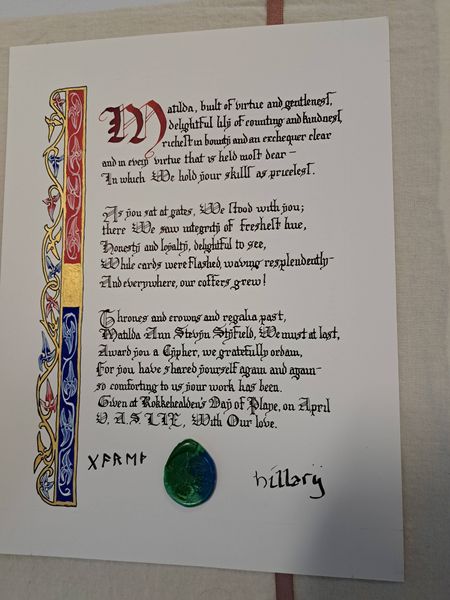 Matilda, built of virtue and gentleness,
delightful lily of counting and kindness,
richest in bounty and an exchequer clear
and in every virtue that is held most dear –
In which We hold your skills as priceless.
As you sat at gates, We stood with you;
there We saw integrity of freshest hue,
Honesty and loyalty, delightful to see,
While cards were flashed, waving resplendently–
And everywhere, our coffers grew!
Thrones and crowns and regalia past,
Matilda Ann Stevyn Styfield, We must at last,
Award you a Cypher, we gratefully ordain,
For you have shared yourself again and again–
so comforting to us your work has been.
Given at Rokkehealden's Day of Playe, on April
V, A.S LIX, With Our love.
hillary